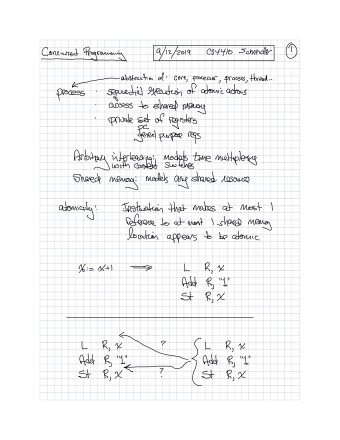 Concurrent Programming 9/12/2019 CS4410 Schneider 1
abstraction of: core, processor, process, thread..
process · sequential execution of atomic actions
· access to shared memory
· private set of registers
pc
general purpose regs
Arbitrary interleaving: models time multiplexing
with context switches
Shared memory: models any shared resource
atomicity: Instruction that makes at most 1
reference to at most 1 shared memory
location appears to be atomic
x := x+1 ⟹ L R, x
Add R, "1"
St R, x
L R, x ? L R, x
Add R, "1" Add R, "1"
St R, x ? St R, x